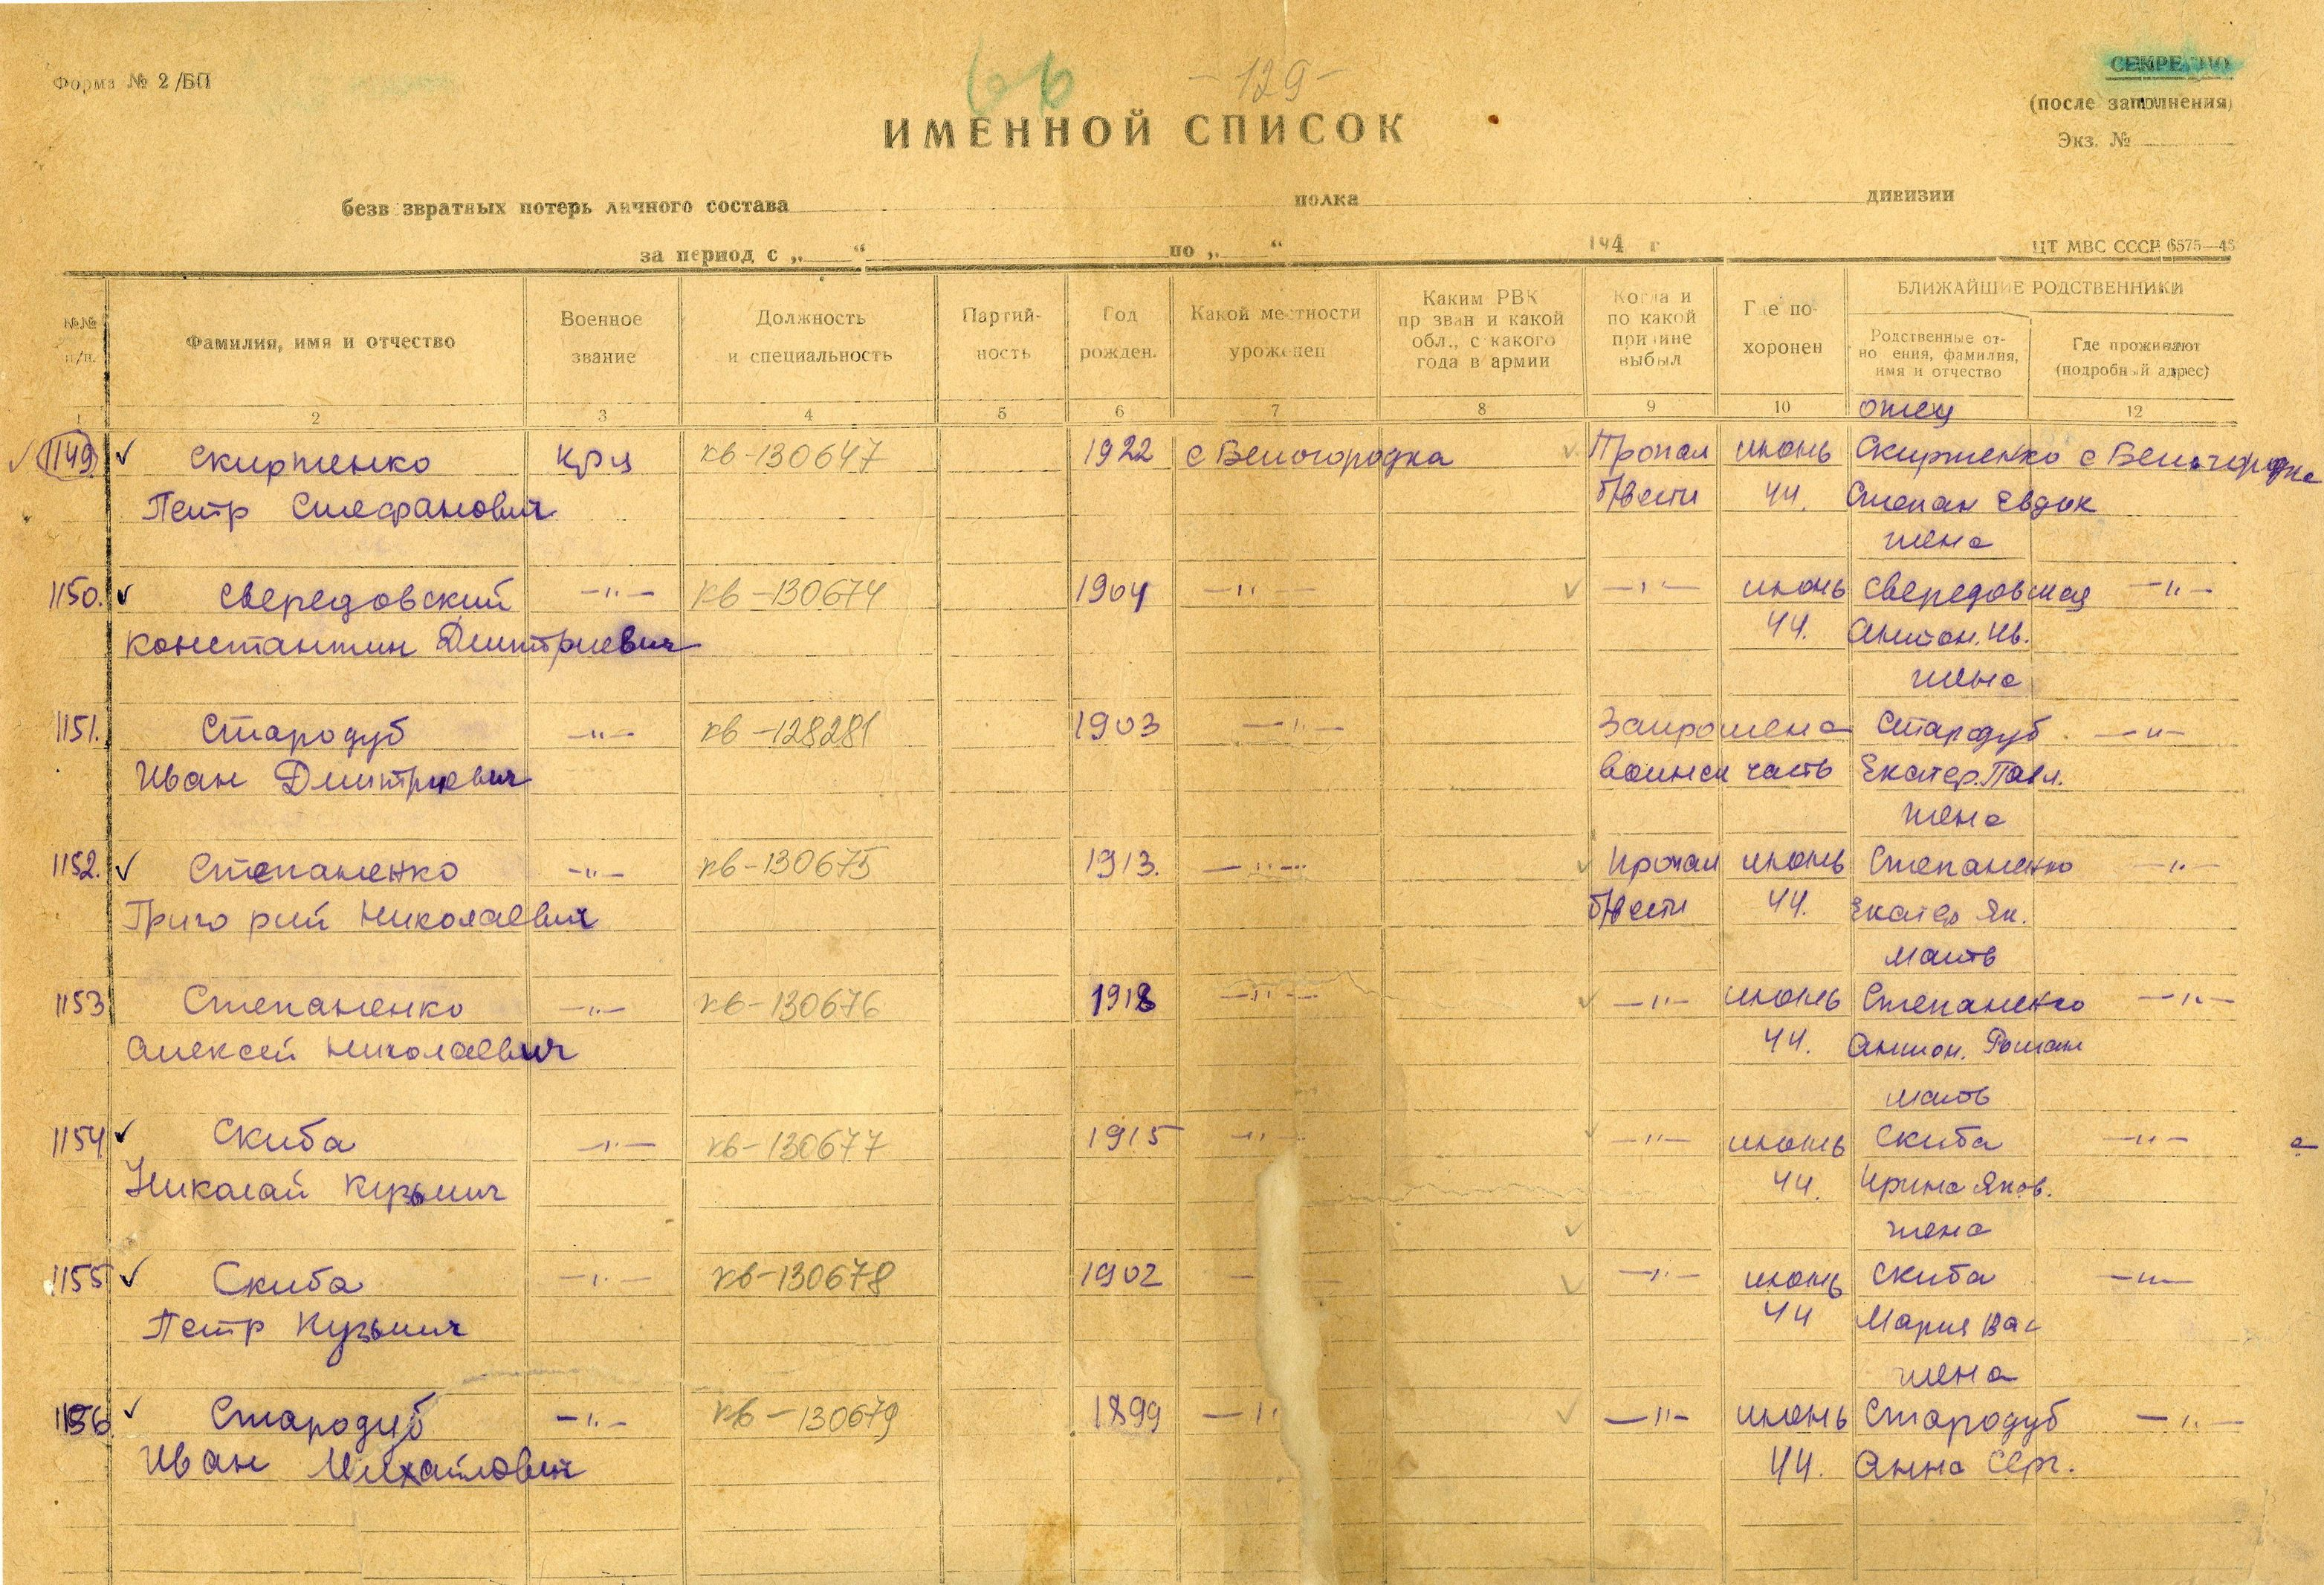 Форма № 2/БП
66
-129-
СЕКРЕТНО
(после заполнения)
Экз. №
ИМЕННОЙ СПИСОК
безвозвратных потерь личного состава полка дивизии
за период с „ “ по „ “ 194 г
ЦТ МВС СССР 6575—45
№№ п/п.
Фамилия, имя и отчество
Военное звание
Должность и специальность
Партий-
ность
Год рожден.
Какой местности уроженец
Каким РВК
призван и какой
обл., с какого
года в армии
Когда и
по какой
причине
выбыл
Где по-
хоронен
БЛИЖАЙШИЕ РОДСТВЕННИКИ
Родственные от-
ношения, фамилия,
имя и отчество
Где проживают
(подробный адрес)
1 2 3 4 5 6 7 8 9 10 12
отец
1149 Скирженко кр-ц кв-130647 1922 с Белогородка Пропал июнь Скирженко с Белогородка
Петр Стефанович б/вести 44. Степан Евдок
жена
1150. Свередовский -"- кв-130674 1904 -"- -"- июнь Свередовская -"-
Константин Дмитриевич 44. Антон. Ив.
жена
1151. Стародуб -"- кв-128281 1903 -"- Запрошена Стародуб -"-
Иван Дмитриевич воинск часть Екатер. Павл.
жена
1152. Степаненко -"- кв-130675 1913. -"- Пропал июнь Степаненко -"-
Григорий Николаевич б/вести 44. Екатер Як.
мать
1153 Степаненко -"- кв-130676 1918 -"- -"- июнь Степаненко -"-
Алексей Николаевич 44. Антон. Роман
мать
1154 Скиба -"- кв-130677 1915 -"- -"- июнь Скиба -"-
Николай Кузьмич 44. Ирина Яков.
жена
1155 Скиба -"- кв-130678 1902 -"- июнь Скиба -"-
Петр Кузьмич 44 Мария Вас
жена
1156 Стародуб -"- кв-130679 1899 -"- -"- июнь Стародуб -"-
Иван Михайлович 44. Анна Серг.